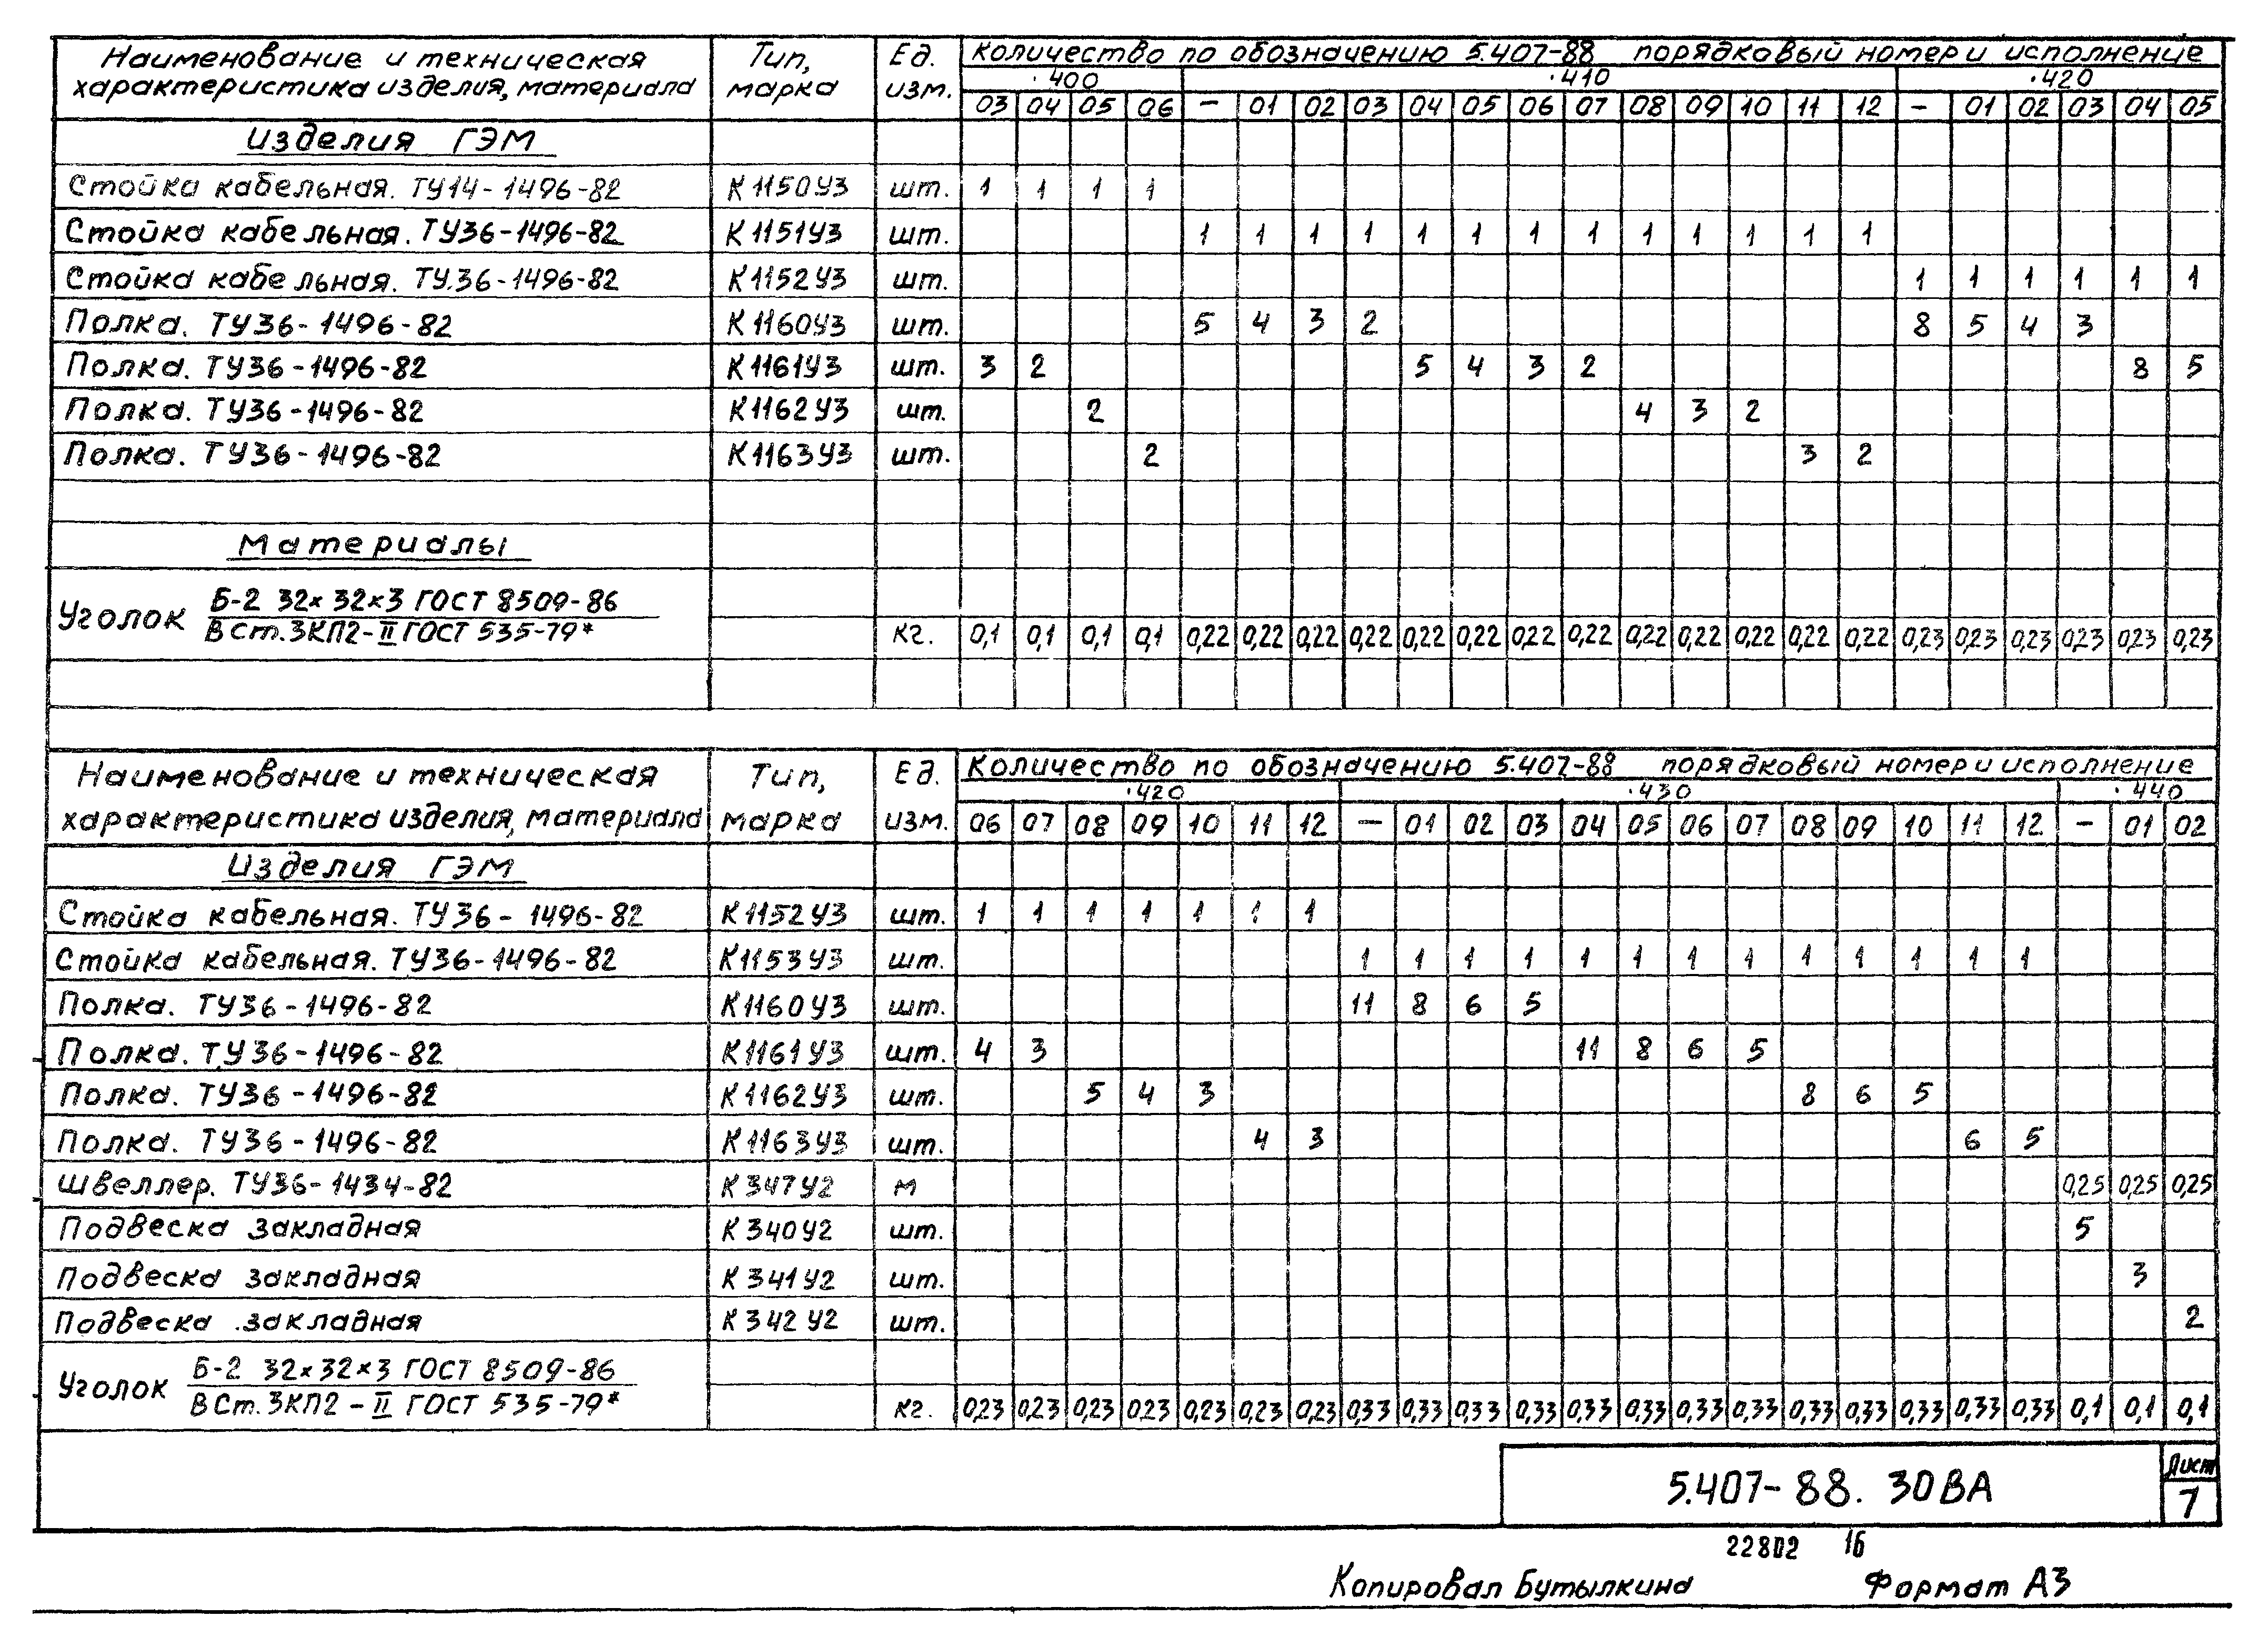 Наименование и техническая Тип, Ед. Количество по обозначению 5.407-88 порядковый номер и исполнение
характеристика изделия, материала марка изм. .400 .410 .420
03 04 05 06 – 01 02 03 04 05 06 07 08 09 10 11 12 – 01 02 03 04 05
Изделия ГЭМ
Стойка кабельная. ТУ14-1496-82 К1150У3 шт. 1 1 1 1
Стойка кабельная. ТУ36-1496-82 К1151У3 шт. 1 1 1 1 1 1 1 1 1 1 1 1 1
Стойка кабельная. ТУ.36-1496-82 К1152У3 шт. 1 1 1 1 1 1
Полка. ТУ36-1496-82 К1160У3 шт. 5 4 3 2 8 5 4 3
Полка. ТУ36-1496-82 К1161У3 шт. 3 2 5 4 3 2 8 5
Полка. ТУ36-1496-82 К1162У3 шт. 2 4 3 2
Полка. ТУ36-1496-82 К1163У3 шт. 2 3 2
Материалы
Уголок Б-2 32×32×3 ГОСТ 8509-86
ВСт.3КП2-II ГОСТ 535-79* кг. 0,1 0,1 0,1 0,1 0,22 0,22 0,22 0,22 0,22 0,22 0,22 0,22 0,22 0,22 0,22 0,22 0,22 0,23 0,23 0,23 0,23 0,23 0,23
Наименование и техническая Тип, Ед. Количество по обозначению 5.407-88 порядковый номер и исполнение
.420 .430 .440
характеристика изделия, материала марка изм. 06 07 08 09 10 11 12 – 01 02 03 04 05 06 07 08 09 10 11 12 – 01 02
Изделия ГЭМ
Стойка кабельная. ТУ36-1496-82 К1152У3 шт. 1 1 1 1 1 1 1
Стойка кабельная. ТУ36-1496-82 К1153У3 шт. 1 1 1 1 1 1 1 1 1 1 1 1 1
Полка. ТУ36-1496-82 К1160У3 шт. 11 8 6 5
Полка. ТУ36-1496-82 К1161У3 шт. 4 3 11 8 6 5
Полка. ТУ36-1496-82 К1162У3 шт. 5 4 3 8 6 5
Полка. ТУ36-1496-82 К1163У3 шт. 4 3 6 5
Швеллер. ТУ36-1434-82 К347У2 м 0,25 0,25 0,25
Подвеска закладная К340У2 шт. 5
Подвеска закладная К341У2 шт. 3
Подвеска .закладная К342У2 шт. 2
Уголок Б-2 32×32×3 ГОСТ 8509-86
ВСт.3КП2-II ГОСТ 535-79* кг. 0,23 0,23 0,23 0,23 0,23 0,23 0,23 0,33 0,33 0,33 0,33 0,33 0,33 0,33 0,33 0,33 0,33 0,33 0,33 0,33 0,1 0,1 0,1
5.407-88. 30ВА
Лист
7
22802 16
Копировал Бутылкина Формат А3